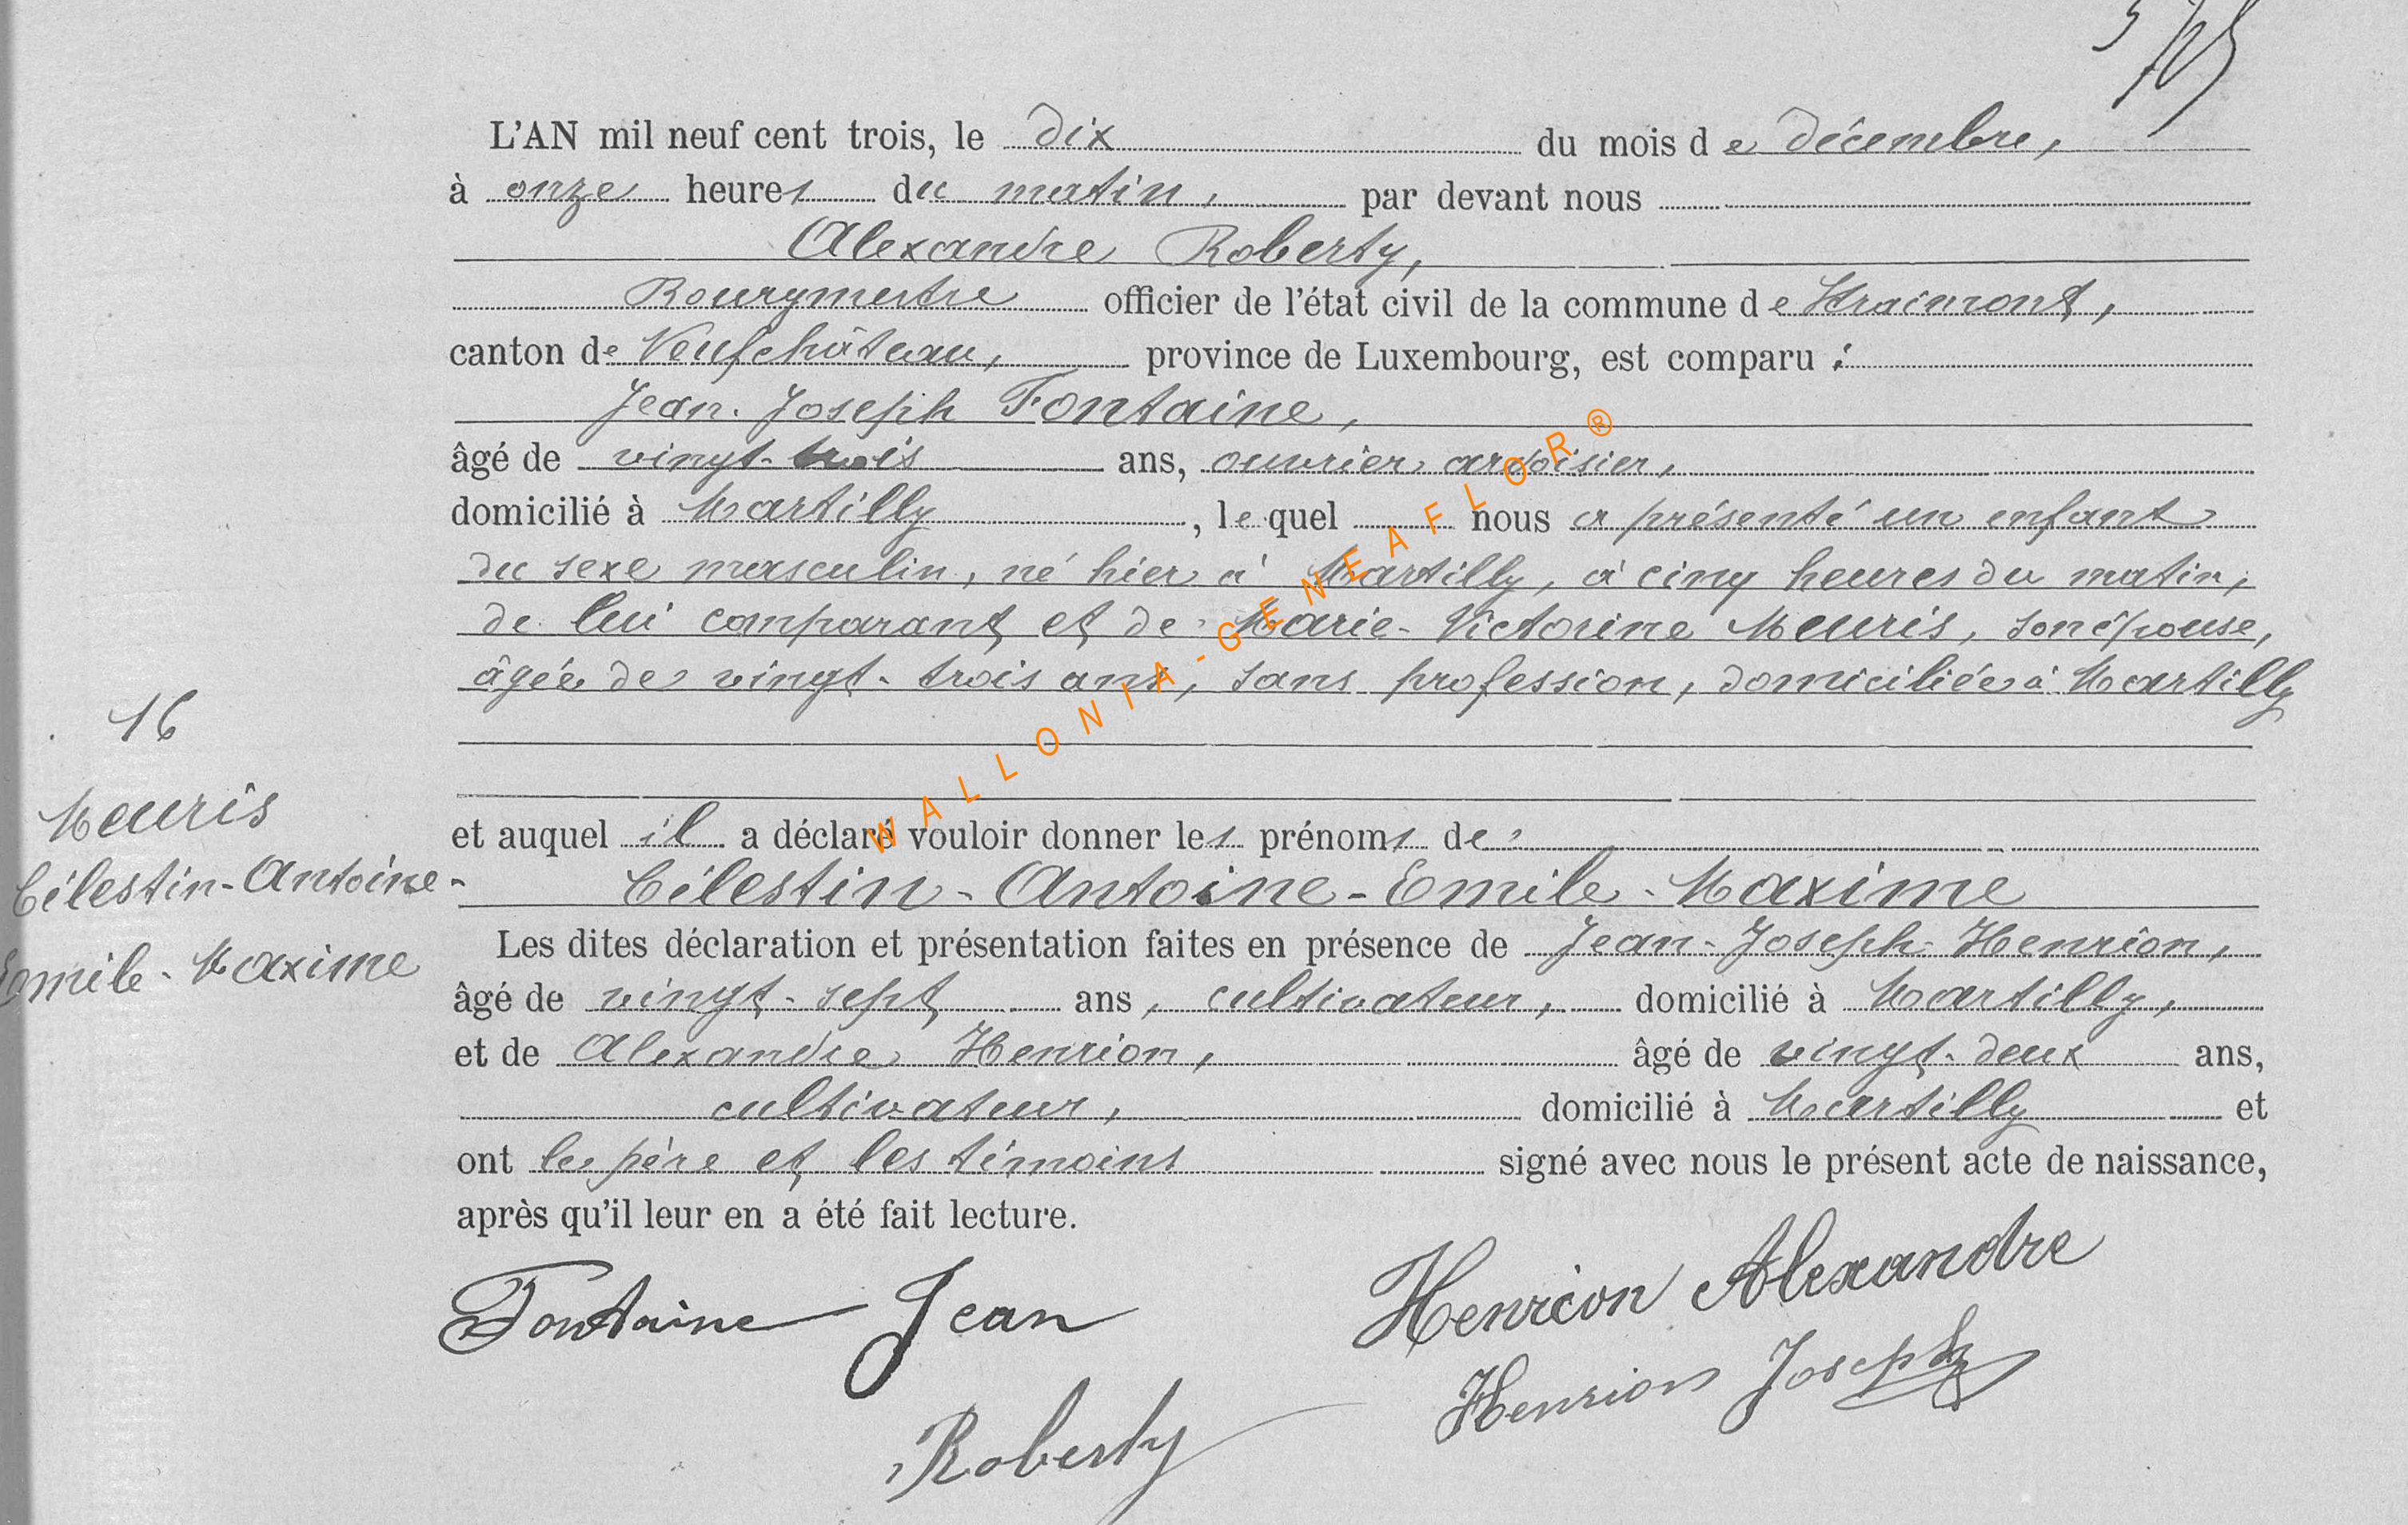 L'AN mil neuf cent trois, le dix du mois de décembre,
à onze heures du matin, par devant nous
Alexandre Roberty,
Bourgmestre officier de l'état civil de la commune de Straimont,
canton de Neufchâteau, province de Luxembourg, est comparu :
Jean-Joseph Fontaine,
âgé de vingt-trois ans, ouvrier ardoisier,
domicilié à Martilly, lequel nous a présenté un enfant
du sexe masculin, né hier à Martilly, à cinq heures du matin,
de lui comparant et de Marie-Victorine Meuris, son épouse,
âgée de vingt-trois ans, sans profession, domiciliée à Martilly
16
Meuris
Célestin-Antoine-
Emile-Maxime
et auquel il a déclaré vouloir donner les prénoms de :
Célestin-Antoine-Emile-Maxime
Les dites déclaration et présentation faites en présence de Jean-Joseph Henrion,
âgé de vingt-sept ans, cultivateur, domicilié à Martilly,
et de Alexandre Henrion, âgé de vingt-deux ans,
cultivateur, domicilié à Martilly et
ont le père et les témoins signé avec nous le présent acte de naissance,
après qu'il leur en a été fait lecture.
Fontaine Jean
Henrion Alexandre
Henrion Joseph
Roberty
WALLONIA-GENEAFLOR®